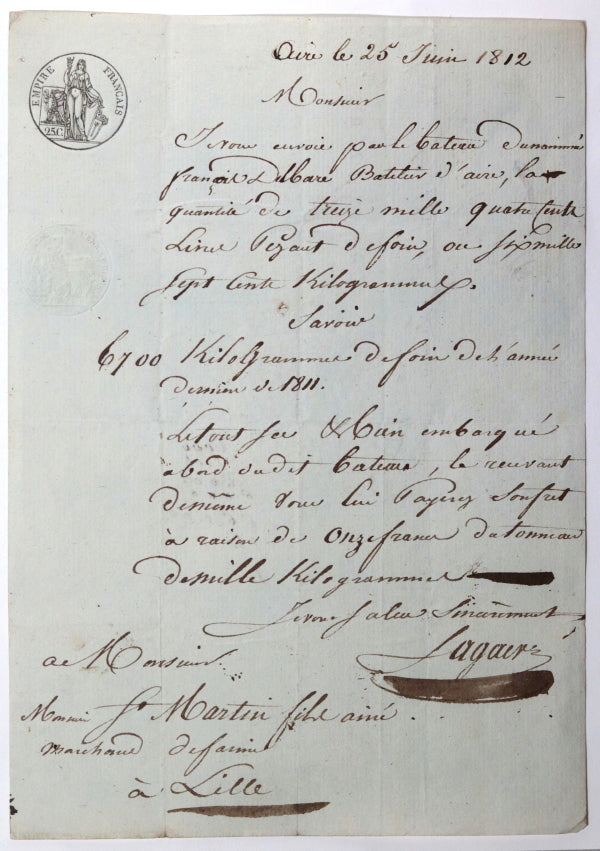 EMPIRE FRANÇAIS
25 C.
Aire le 25 Juin 1812
Monsieur
Je vous envoie par le bateau du nommé
françois Delbare Batelier d'aire, la
quantité de treize mille quatre Cents
Livres Pezant de foin, ou six mille
sept Cents Kilogrammes.
Savoir
6700 Kilogrammes de foin de l'année
dernière 1811.
Le tout sec & Bien embarqué
à bord du dit bateau, le recevant
de même vous lui Payerez Son fret
à raison de Onze francs du tonneau
de mille Kilogrammes
Je vous salue Sincèrement
Lagaer
a Monsieur
Monsieur St Martin fils ainé
marchand de farine
à Lille